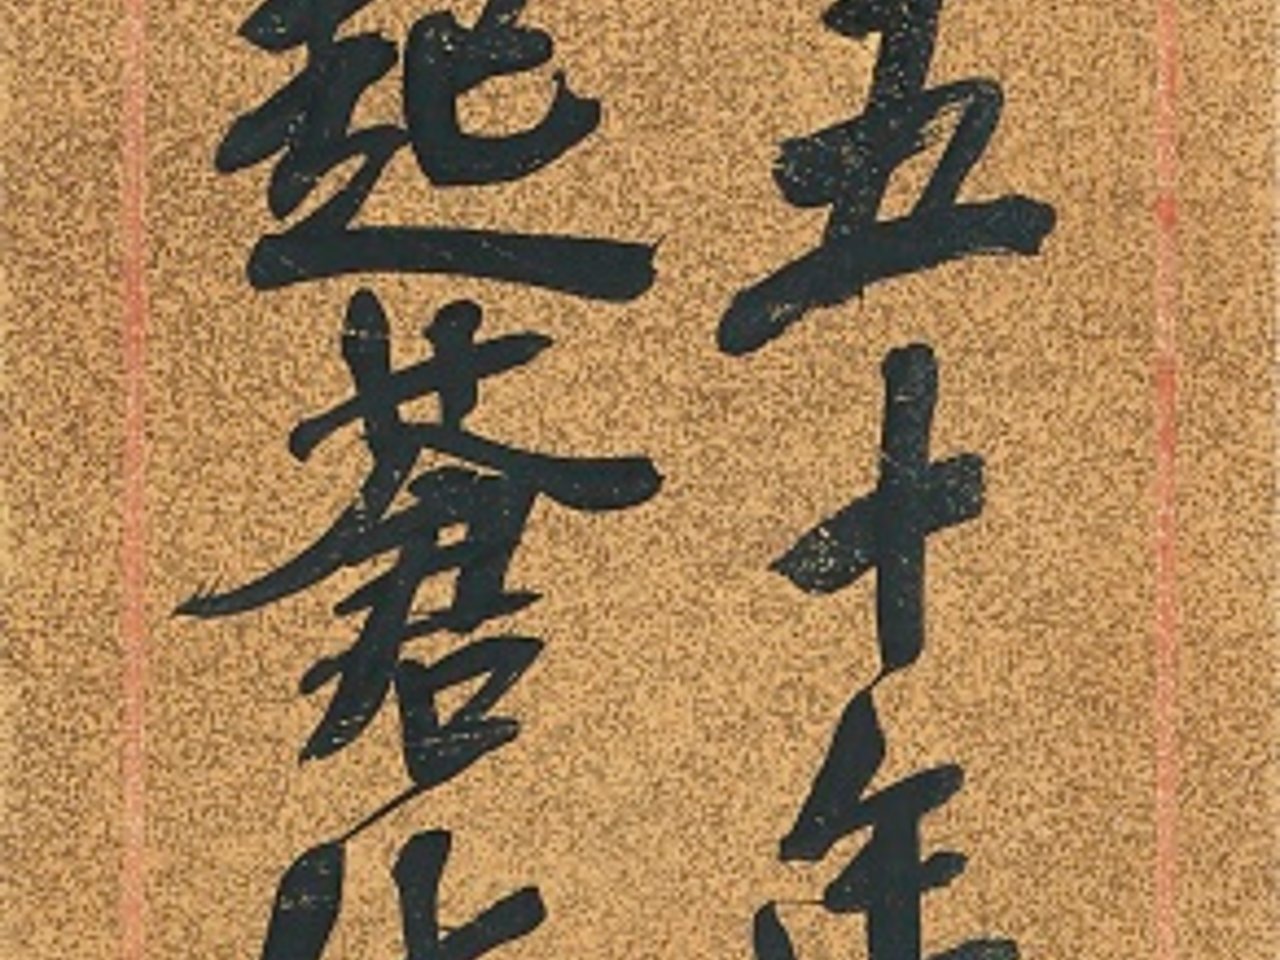 五十年
起蒼